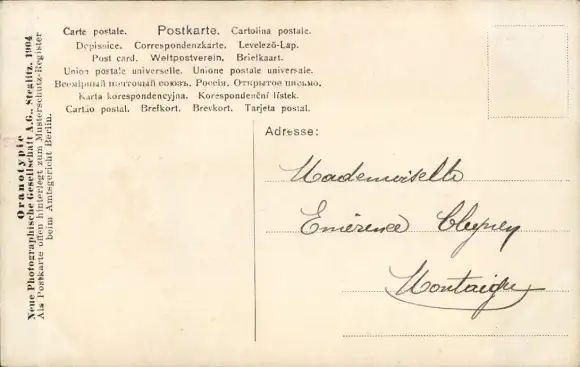 Carte postale. Postkarte. Cartolina postale.
Dopisnice. Correspondenzkarte. Levelező-Lap.
Post card. Weltpostverein. Briefkaart.
Union postale universelle. Unione postale universale.
Всемірный почтовый союзъ. Россія. Открытое письмо.
Karta korespondencyjna. Korespondenční lístek.
Cartão postal. Brefkort. Brevkort. Tarjeta postal.
Oranotypie
Neue Photographische Gesellschaft A.G., Steglitz, 1904
Als Postkarte offen hinterlegt zum Musterschutz-Register
beim Amtsgericht Berlin.
Adresse:
Mademoiselle
Emérence
Montaigu